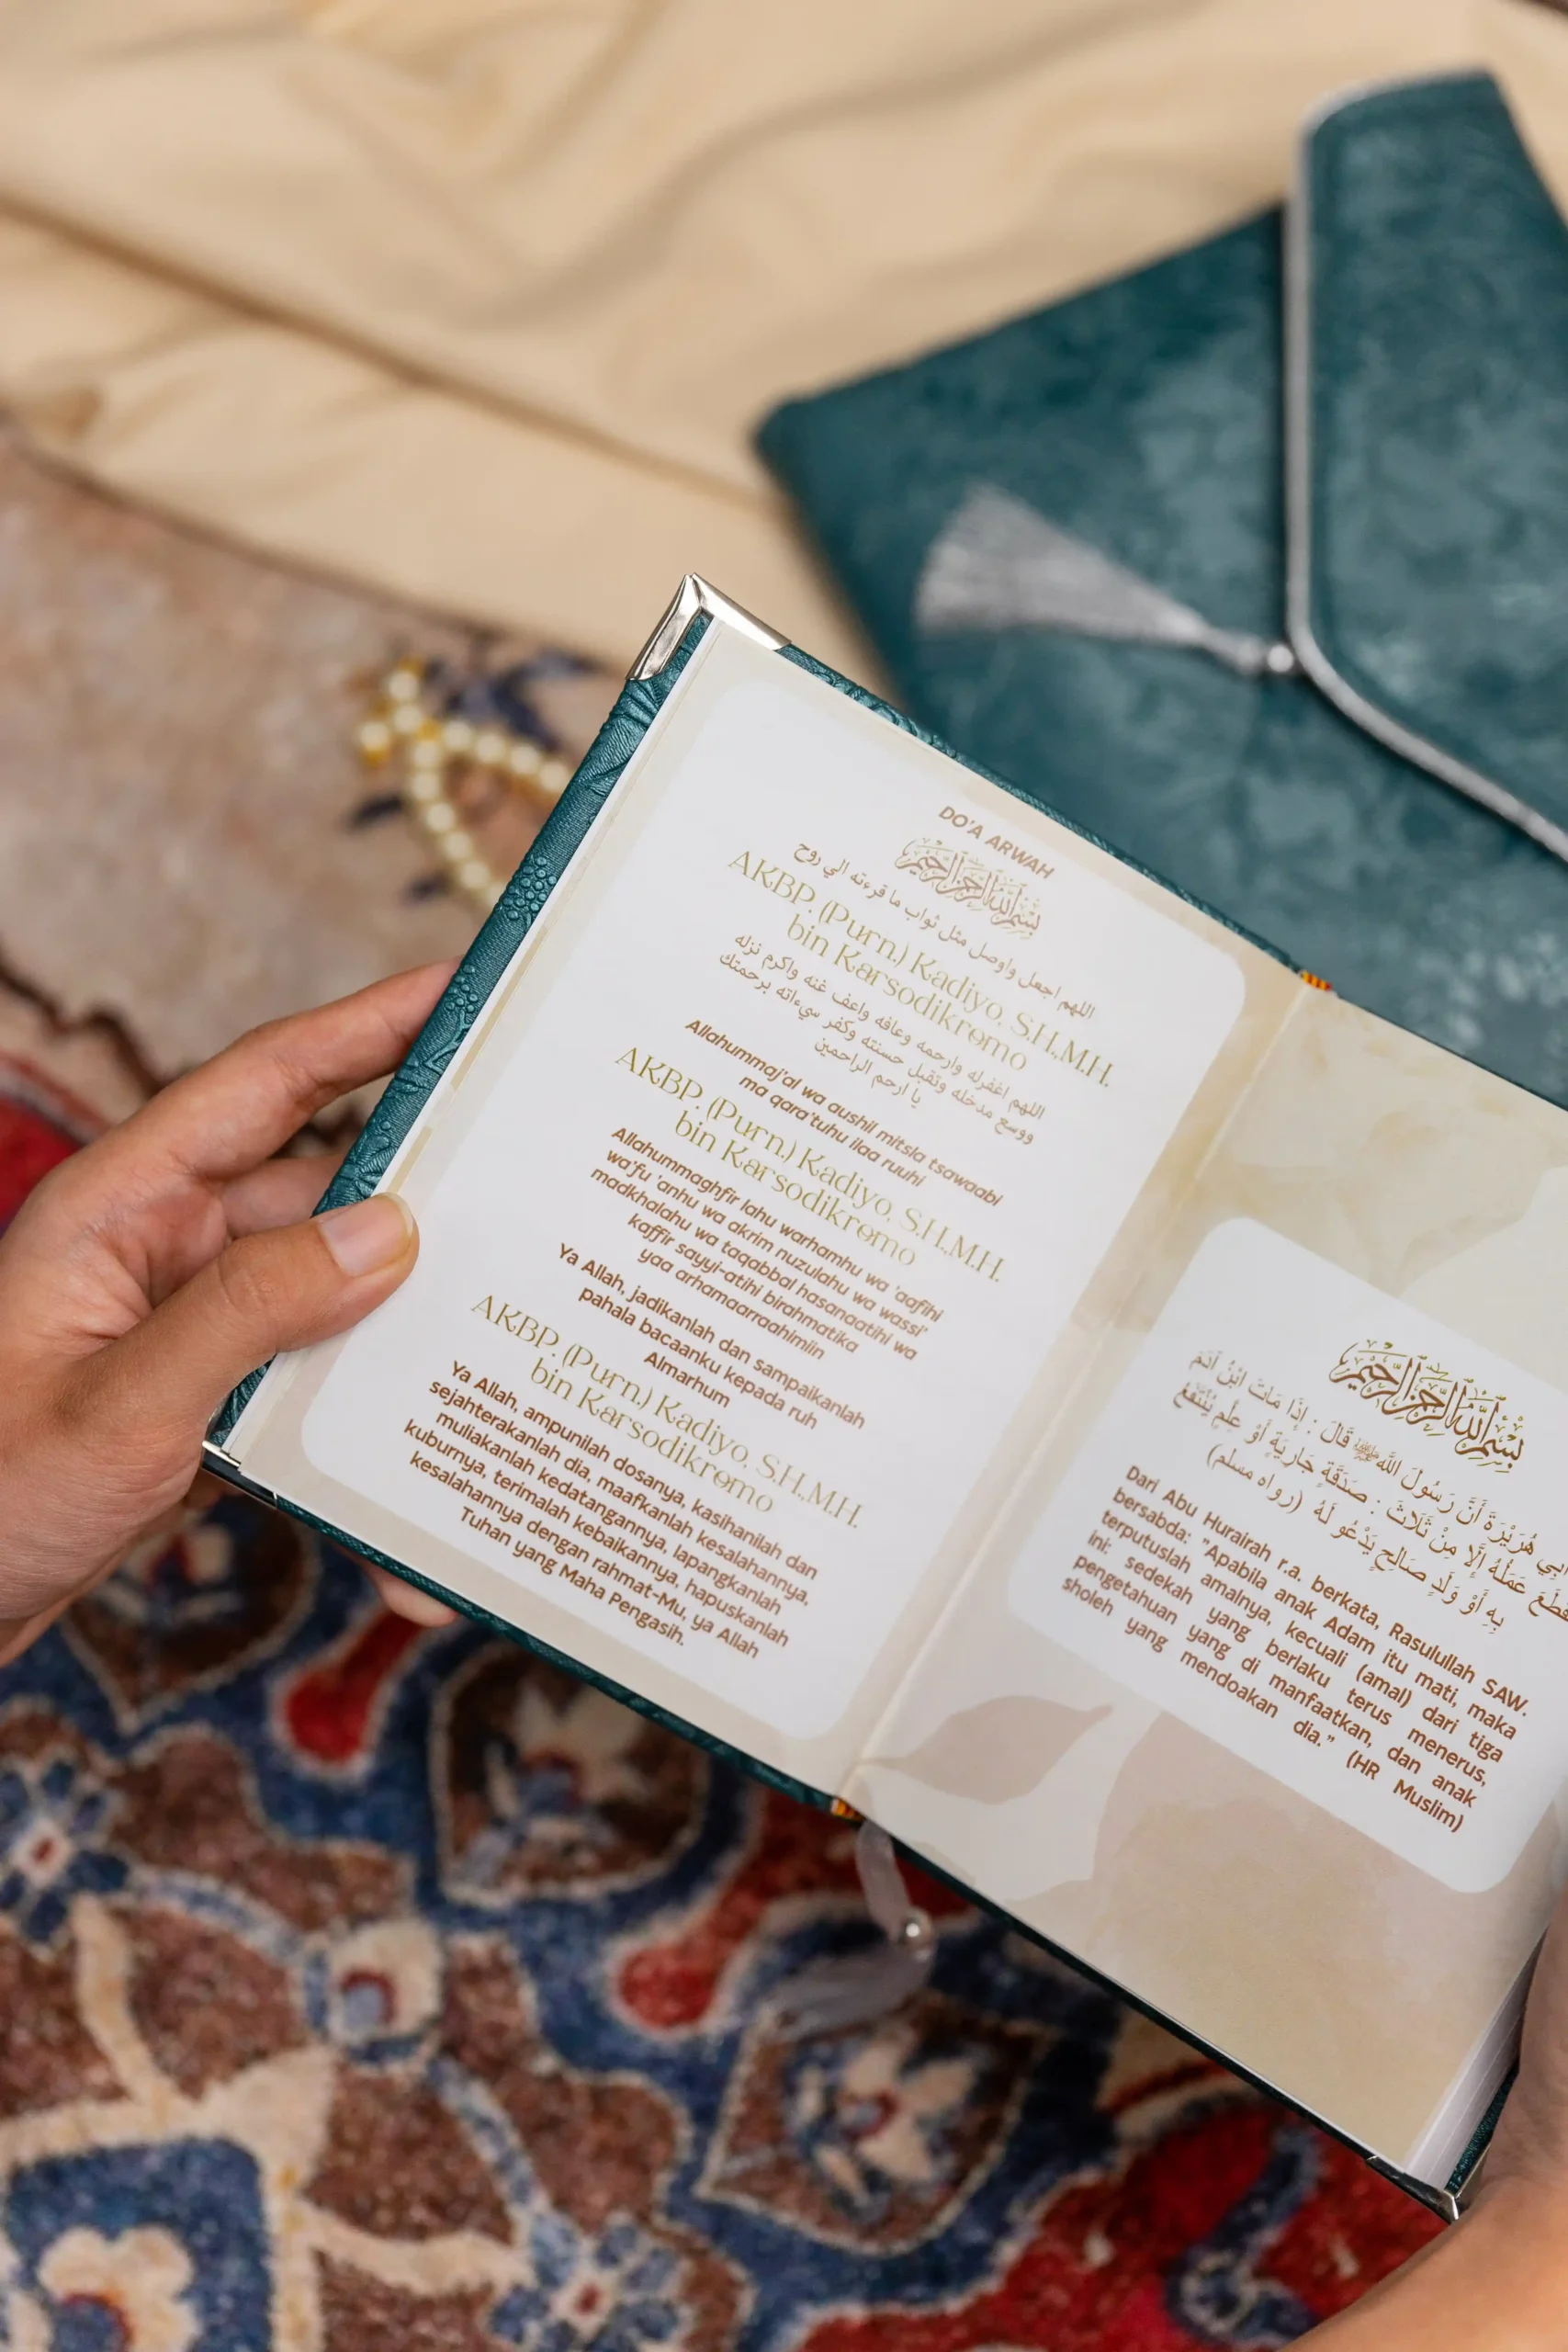 DO'A ARWAH
بسم الله الرحمن الرحيم
اللهم اجعل واوصل مثل ثواب ما قرءته الي روح
AKBP. (Purn.) Kadiyo, S.H.,M.H.
bin Karsodikromo
اللهم اغفرله وارحمه وعافه واعف عنه واكرم نزله
ووسع مدخله وتقبل حسنته وكفر سيءاته برحمتك
يا ارحم الراحمين
Allahummaj'al wa aushil mitsla tsawaabi
ma qara'tuhu ilaa ruuhi
AKBP. (Purn.) Kadiyo, S.H.,M.H.
bin Karsodikromo
Allahummaghfir lahu warhamhu wa 'aafihi
wa'fu 'anhu wa akrim nuzulahu wa wassi'
madkhalahu wa taqabbal hasanaatihi wa
kaffir sayyi-atihi birahmatika
yaa arhamaarraahimiin
Ya Allah, jadikanlah dan sampaikanlah
pahala bacaanku kepada ruh
Almarhum
AKBP. (Purn.) Kadiyo, S.H.,M.H.
bin Karsodikromo
Ya Allah, ampunilah dosanya, kasihanilah dan
sejahterakanlah dia, maafkanlah kesalahannya,
muliakanlah kedatangannya, lapangkanlah
kuburnya, terimalah kebaikannya, hapuskanlah
kesalahannya dengan rahmat-Mu, ya Allah
Tuhan yang Maha Pengasih.
بسم الله الرحمن الرحيم
هُرَيْرَةَ أَنَّ رَسُولَ اللَّه ﷺ قَالَ : إِذَا مَاتَ ابْنُ آدَمَ
عَمَلُهُ إِلَّا مِنْ ثَلَاثَ : صَدَقَةٍ جَارِيَةٍ أَوْ عِلْمٍ يُنْتَفَعُ
بِهِ أَوْ وَلَدٍ صَالِحٍ يَدْعُو لَهُ (رواه مسلم)
Dari Abu Hurairah r.a. berkata, Rasulullah SAW.
bersabda: "Apabila anak Adam itu mati, maka
terputuslah amalnya, kecuali (amal) dari tiga
ini: sedekah yang berlaku terus menerus,
pengetahuan yang di manfaatkan, dan anak
sholeh yang mendoakan dia." (HR Muslim)